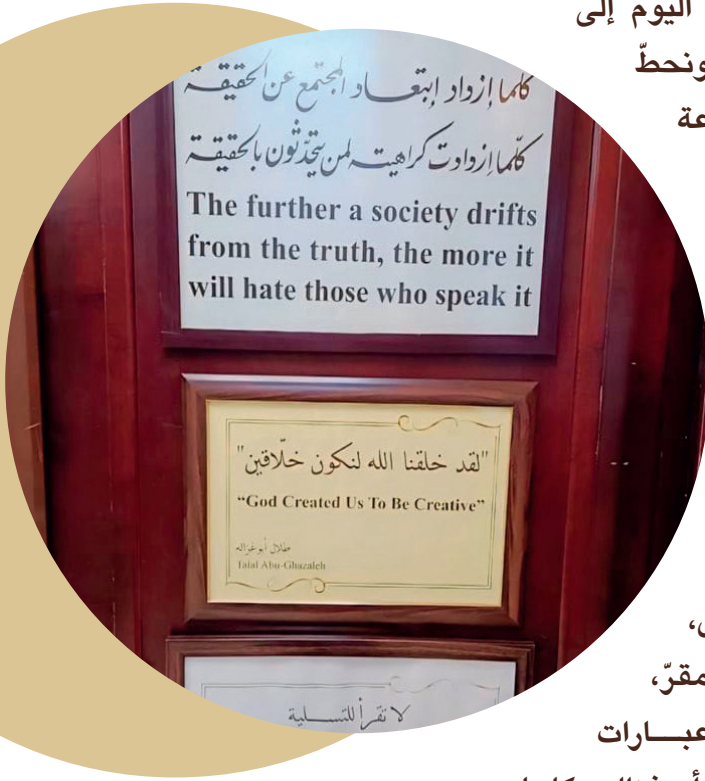 اليوم إلى
ونحطّ
عة
كلما إزداد إبتعاد المجتمع عن الحقيقة
كلّما إزدادت كراهيته لمن يتحدّثون بالحقيقة
The further a society drifts
from the truth, the more it
will hate those who speak it
"لقد خلقنا الله لنكون خلّاقين"
“God Created Us To Be Creative”
طلال أبوغزاله
Talal Abu-Ghazaleh
لا تقرأ للتسلية
مقرّ،
عبـــارات